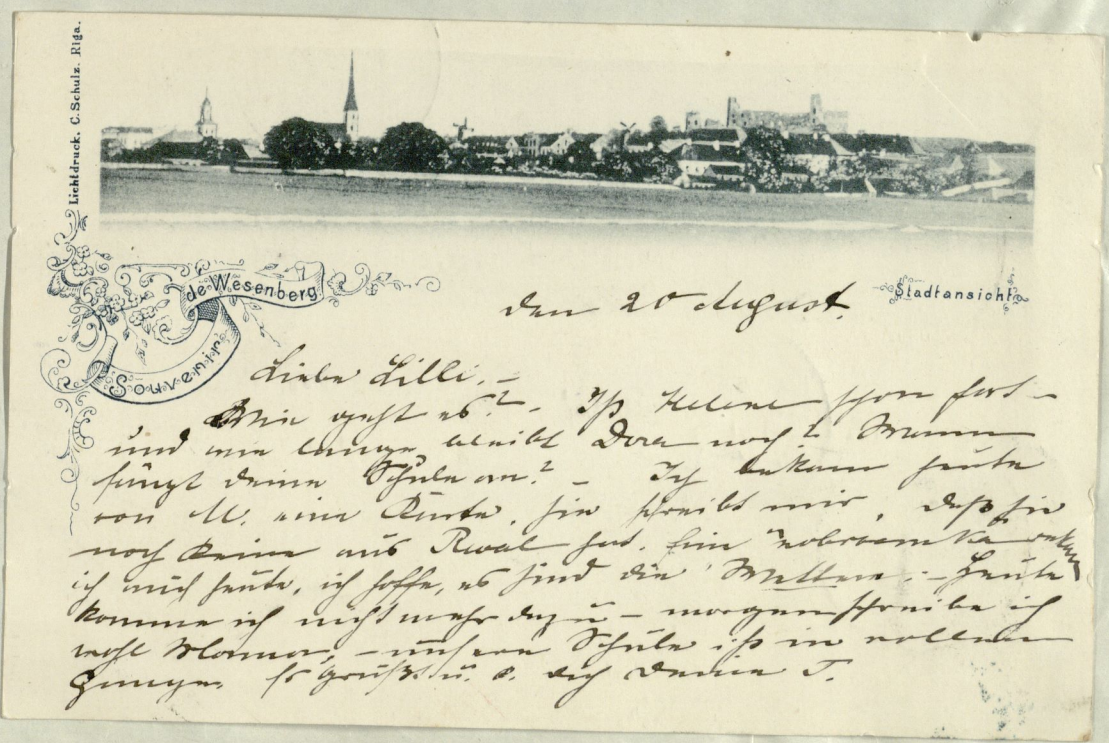 Lichtdruck. C. Schulz. Riga.
Souvenir
de Wesenberg
Stadtansicht
den 20 August.
Liebe Lilli. –
Wie geht es? – Ist Helene schon fort –
und wie lange bleibt Dora noch? Wann
fängt deine Schule an? – Ich bekam heute
von M. eine Karte, sie schreibt mir, daß sie
noch keine aus Reval hat. Ein
ich auch heute, ich hoffe, es sind die – Heute
komme ich nicht mehr dazu – morgen schreibe ich
wohl Mama, – unsere Schule ist in vollem
Gange. Es grüßt u. k. dich Deine T.